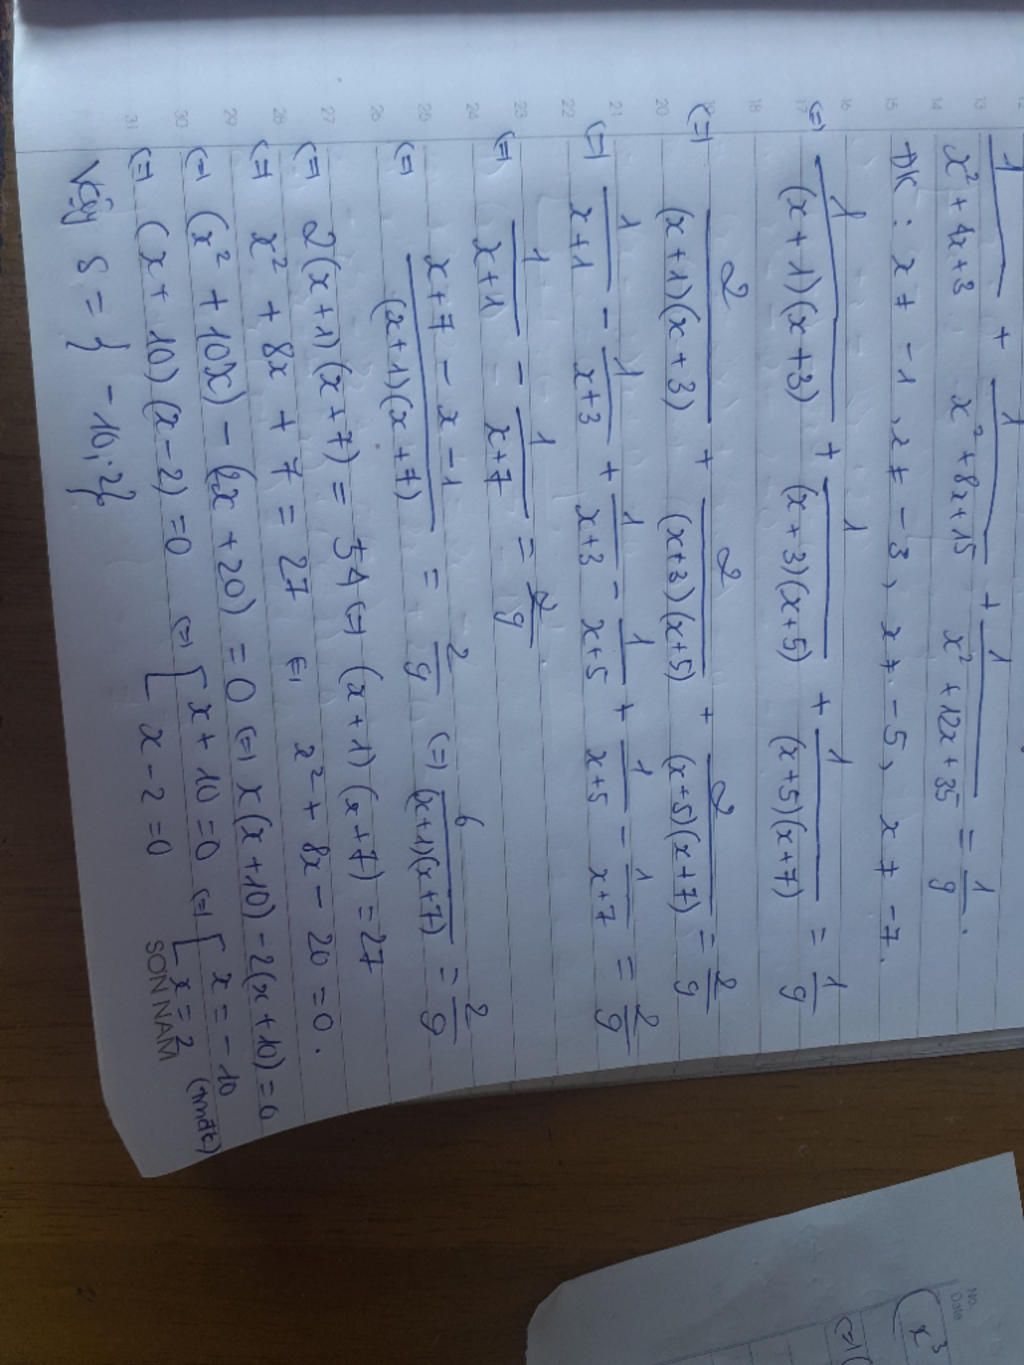 1/(x² + 4x + 3) + 1/(x² + 8x + 15) + 1/(x² + 12x + 35) = 1/9.
ĐK: x ≠ -1, x ≠ -3, x ≠ -5, x ≠ -7.
(=) 1/((x+1)(x+3)) + 1/((x+3)(x+5)) + 1/((x+5)(x+7)) = 1/9
(=) 2/((x+1)(x+3)) + 2/((x+3)(x+5)) + 2/((x+5)(x+7)) = 2/9
(=) 1/(x+1) - 1/(x+3) + 1/(x+3) - 1/(x+5) + 1/(x+5) - 1/(x+7) = 2/9
(=) 1/(x+1) - 1/(x+7) = 2/9
(=) (x+7-x-1)/((x+1)(x+7)) = 2/9 (=) 6/((x+1)(x+7)) = 2/9
(=) 2(x+1)(x+7) = 54 (=) (x+1)(x+7) = 27
(=) x² + 8x + 7 = 27 (=) x² + 8x - 20 = 0.
(=) (x² + 10x) - (2x + 20) = 0 (=) x(x+10) - 2(x+10) = 0
(=) (x+10)(x-2) = 0 (=) [ x + 10 = 0 (=) [ x = -10
x - 2 = 0 x = 2 (tmđk)
Vậy S = { -10; 2}
SON NAM
12
13
14
15
16
17
18
19
20
21
22
23
24
25
26
27
28
29
30
31
No.
Date
x³
(=)